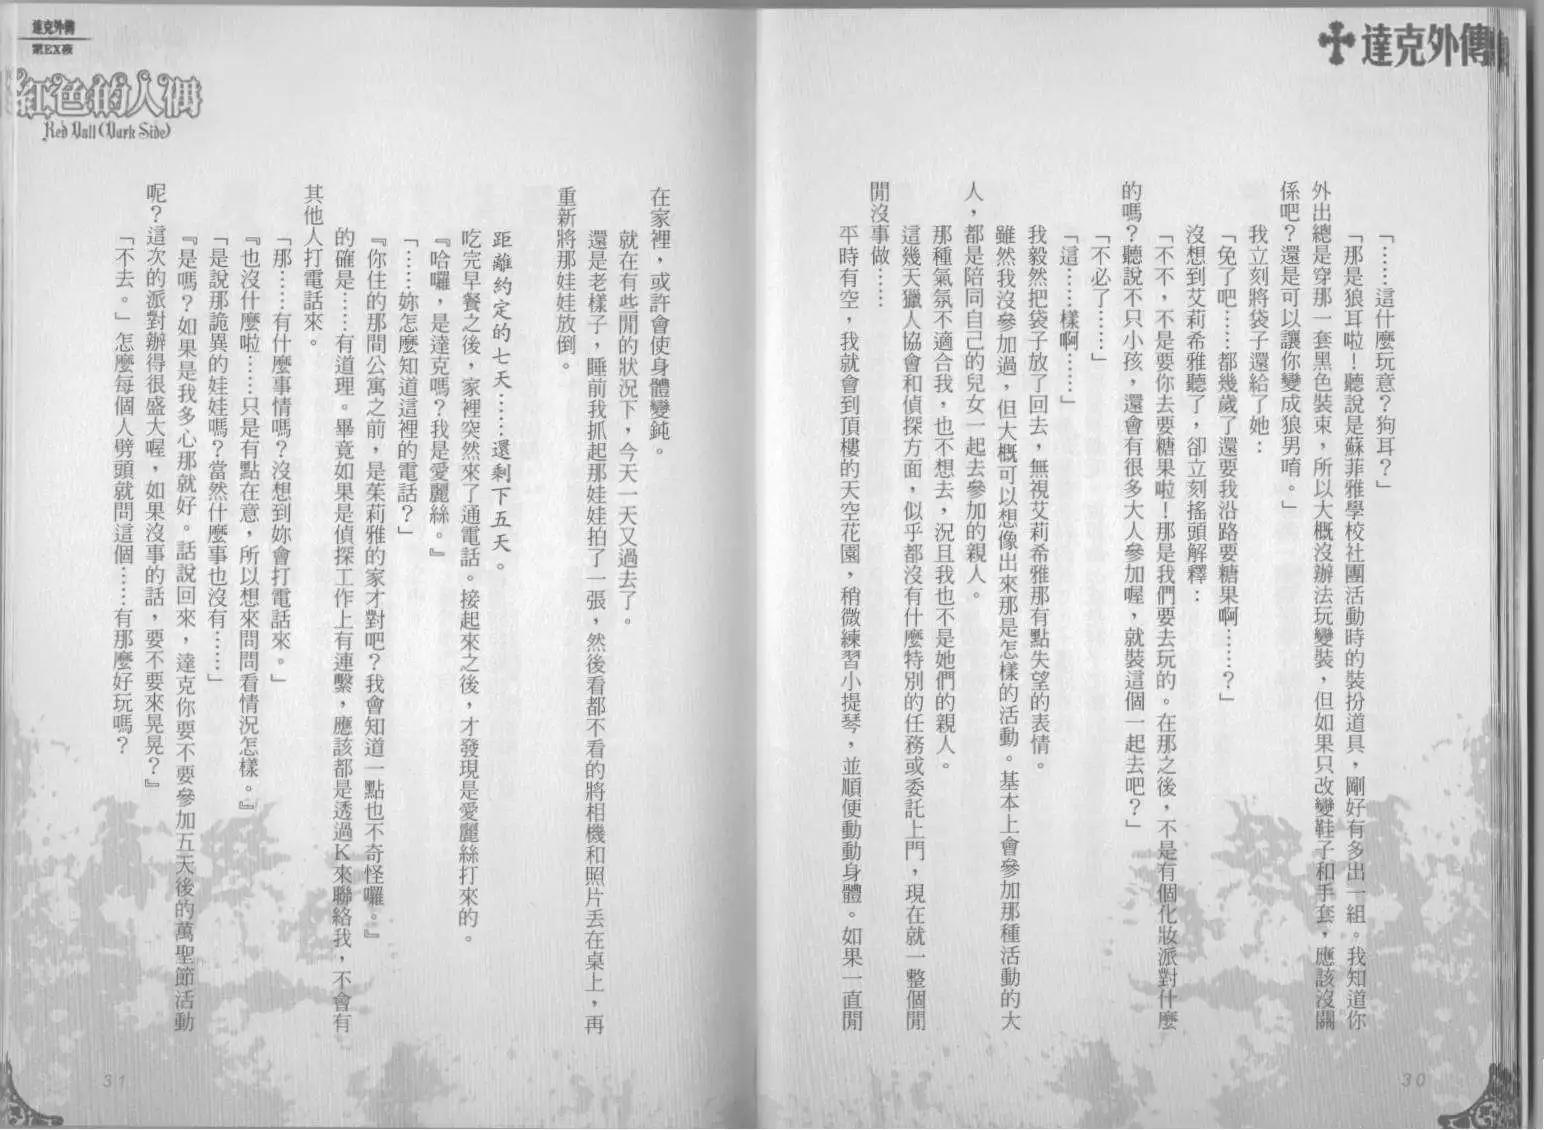 達克外傳
「……這什麼玩意？狗耳？」
「那是狼耳啦！聽說是蘇菲雅學校社團活動時的裝扮道具，剛好有多出一組。我知道你
外出總是穿那一套黑色裝束，所以大概沒辦法玩變裝，但如果只改變鞋子和手套，應該沒關
係吧？還是可以讓你變成狼男唷。」
我立刻將袋子還給了她：
「免了吧……都幾歲了還要我沿路要糖果啊……？」
沒想到艾莉希雅聽了，卻立刻搖頭解釋：
「不不，不是要你去要糖果啦！那是我們要去玩的。在那之後，不是有個化妝派對什麼
的嗎？聽說不只小孩，還會有很多大人參加喔，就裝這個一起去吧？」
「不必了……」
「這……樣啊……」
我毅然把袋子放了回去，無視艾莉希雅那有點失望的表情。
雖然我沒參加過，但大概可以想像出來那是怎樣的活動。基本上會參加那種活動的大
人，都是陪同自己的兒女一起去參加的親人。
那種氣氛不適合我，也不想去，況且我也不是她們的親人。
這幾天獵人協會和偵探方面，似乎都沒有什麼特別的任務或委託上門，現在就一整個閒
閒沒事做……
平時有空，我就會到頂樓的天空花園，稍微練習小提琴，並順便動動身體。如果一直閒
30
達克外傳
第EX夜
紅色的人偶
Red Doll (Dark Side)
在家裡，或許會使身體變鈍。
就在有些閒的狀況下，今天一天又過去了。
還是老樣子，睡前我抓起那娃娃拍了一張，然後看都不看的將相機和照片丟在桌上，再
重新將那娃娃放倒。
距離約定的七天……還剩下五天。
吃完早餐之後，家裡突然來了通電話。接起來之後，才發現是愛麗絲打來的。
『哈囉，是達克嗎？我是愛麗絲。』
「……妳怎麼知道這裡的電話？」
『你住的那間公寓之前，是茱莉雅的家才對吧？我會知道一點也不奇怪囉。』
的確是……有道理。畢竟如果是偵探工作上有連繫，應該都是透過K來聯絡我，不會有
其他人打電話來。
「那……有什麼事情嗎？沒想到妳會打電話來。」
『也沒什麼啦……只是有點在意，所以想來問問看情況怎樣。』
「是說那詭異的娃娃嗎？當然什麼事也沒有……」
『是嗎？如果是我多心那就好。話說回來，達克你要不要參加五天後的萬聖節活動
呢？這次的派對辦得很盛大喔，如果沒事的話，要不要來晃晃？』
「不去。」怎麼每個人劈頭就問這個……有那麼好玩嗎？
31